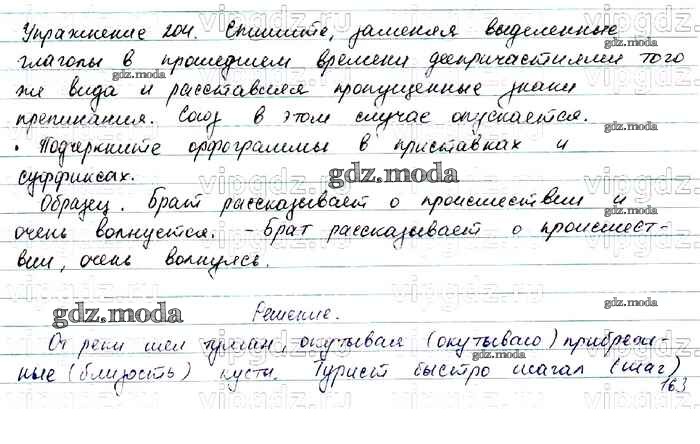 Упражнение 204. Спишите, заменяя выделенные
глаголы в прошедшем времени деепричастиями того
же вида и расставляя пропущенные знаки
препинания. Союз в этом случае опускается.
• Подчеркните орфограммы в приставках и
суффиксах.
Образец. Брат рассказывает о происшествии и
очень волнуется. - Брат рассказывает о происшест-
вии, очень волнуясь.
Решение.
От реки шел туман, окутывая (окутываю) прибреж-
ные (близость) кусты. Турист быстро шагал (шаг)
163
gdz.moda
gdz.moda
gdz.moda
gdz.moda
gdz.moda
gdz.moda
gdz.moda
vipgdz.ru